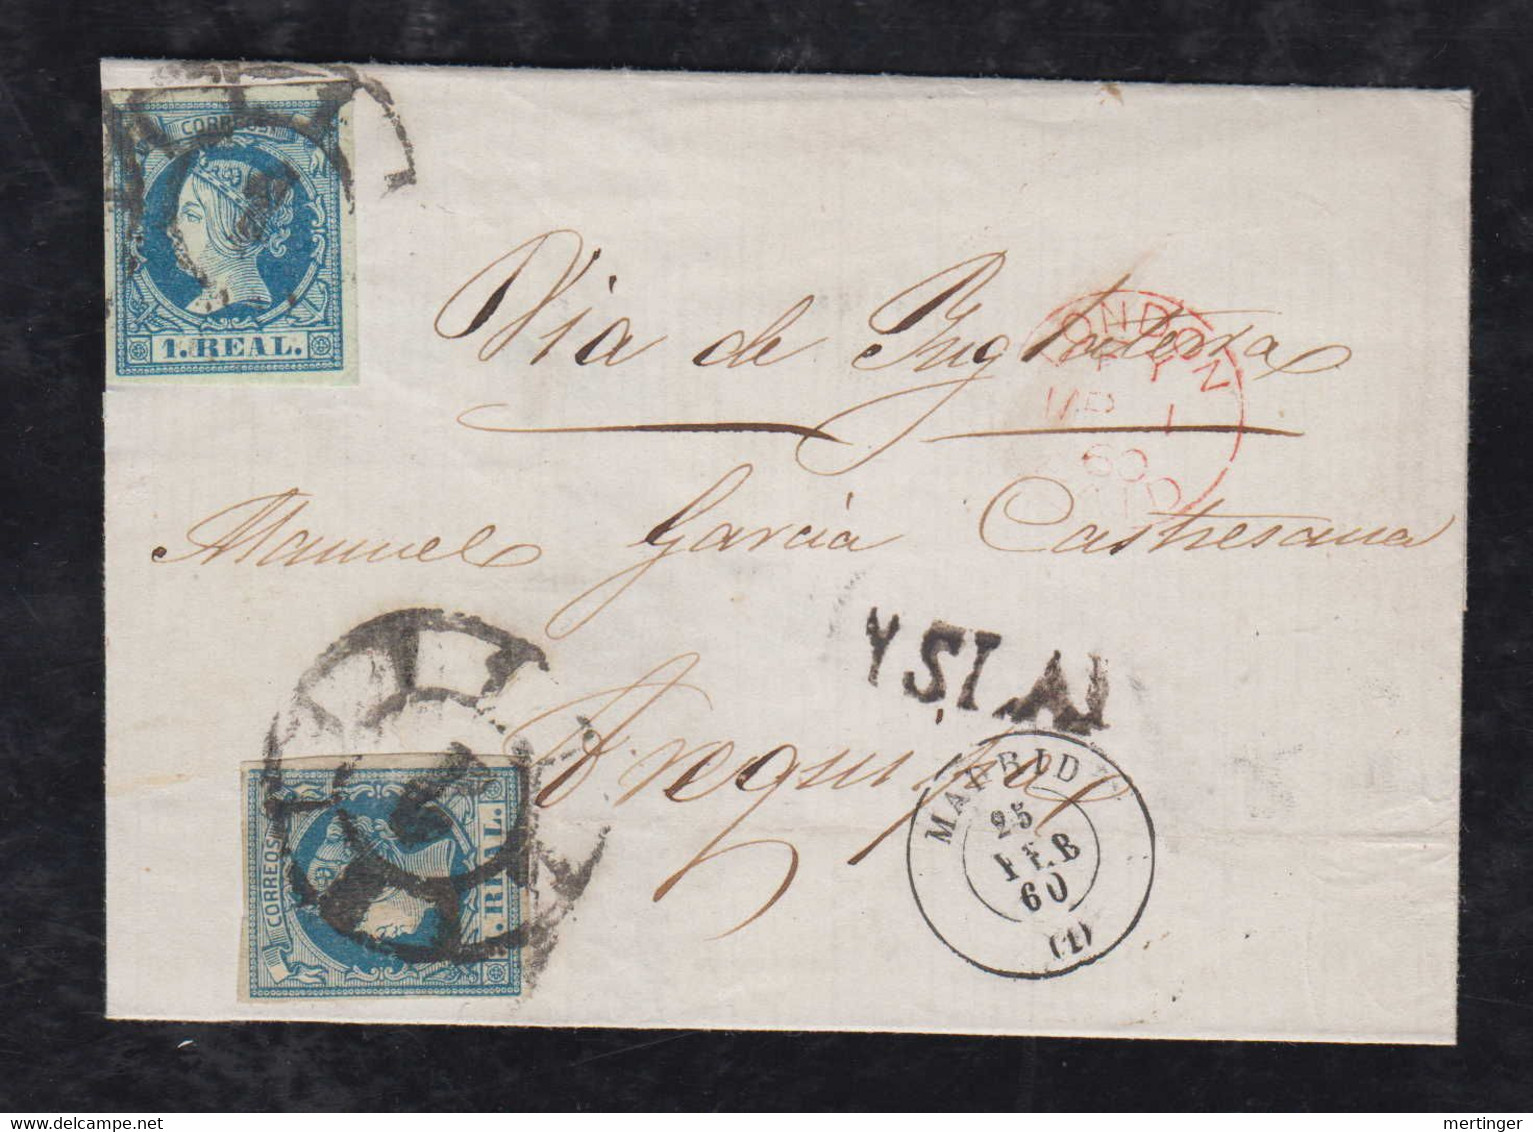 CORREOS
1. REAL.
Via de Inglaterra
LONDON
60
PAID
Manuel Garcia Castresana
YSLAY
Arequipa
MADRID
25
FEB
60
(1)
CORREOS
REAL.
www.delcampe.net
mertinger